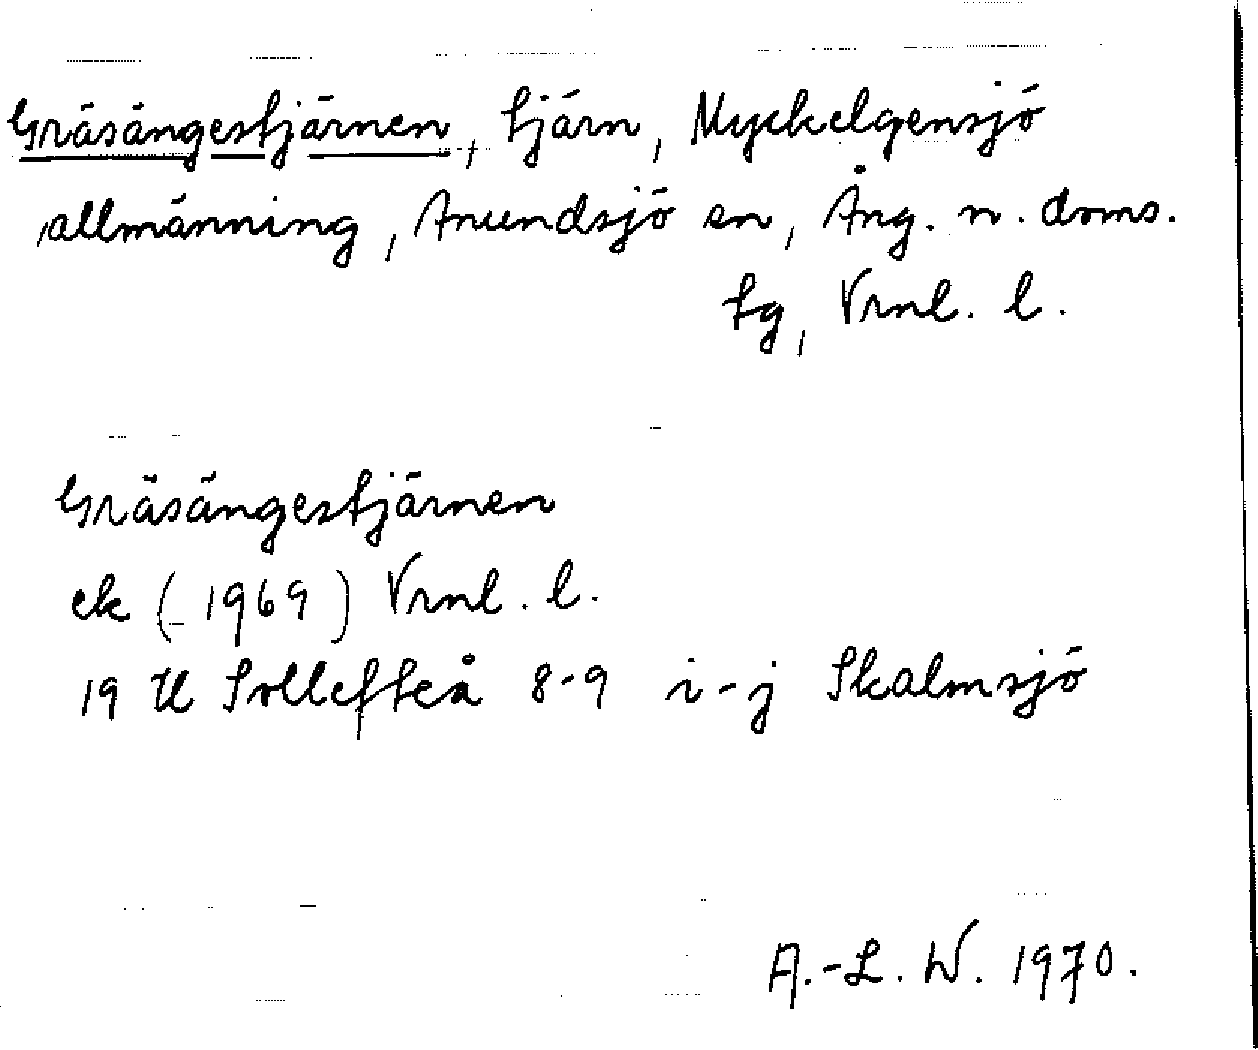 Gräsängestjärnen, tjärn, Myckelgensjö
allmänning, Anundsjö sn, Ång. n. doms.
tg, Vrnl. l.
Gräsängestjärnen
ek (1969) Vrnl. l.
19 H Sollefteå 8-9 i-j Skalmsjö
A.-L. W. 1970.